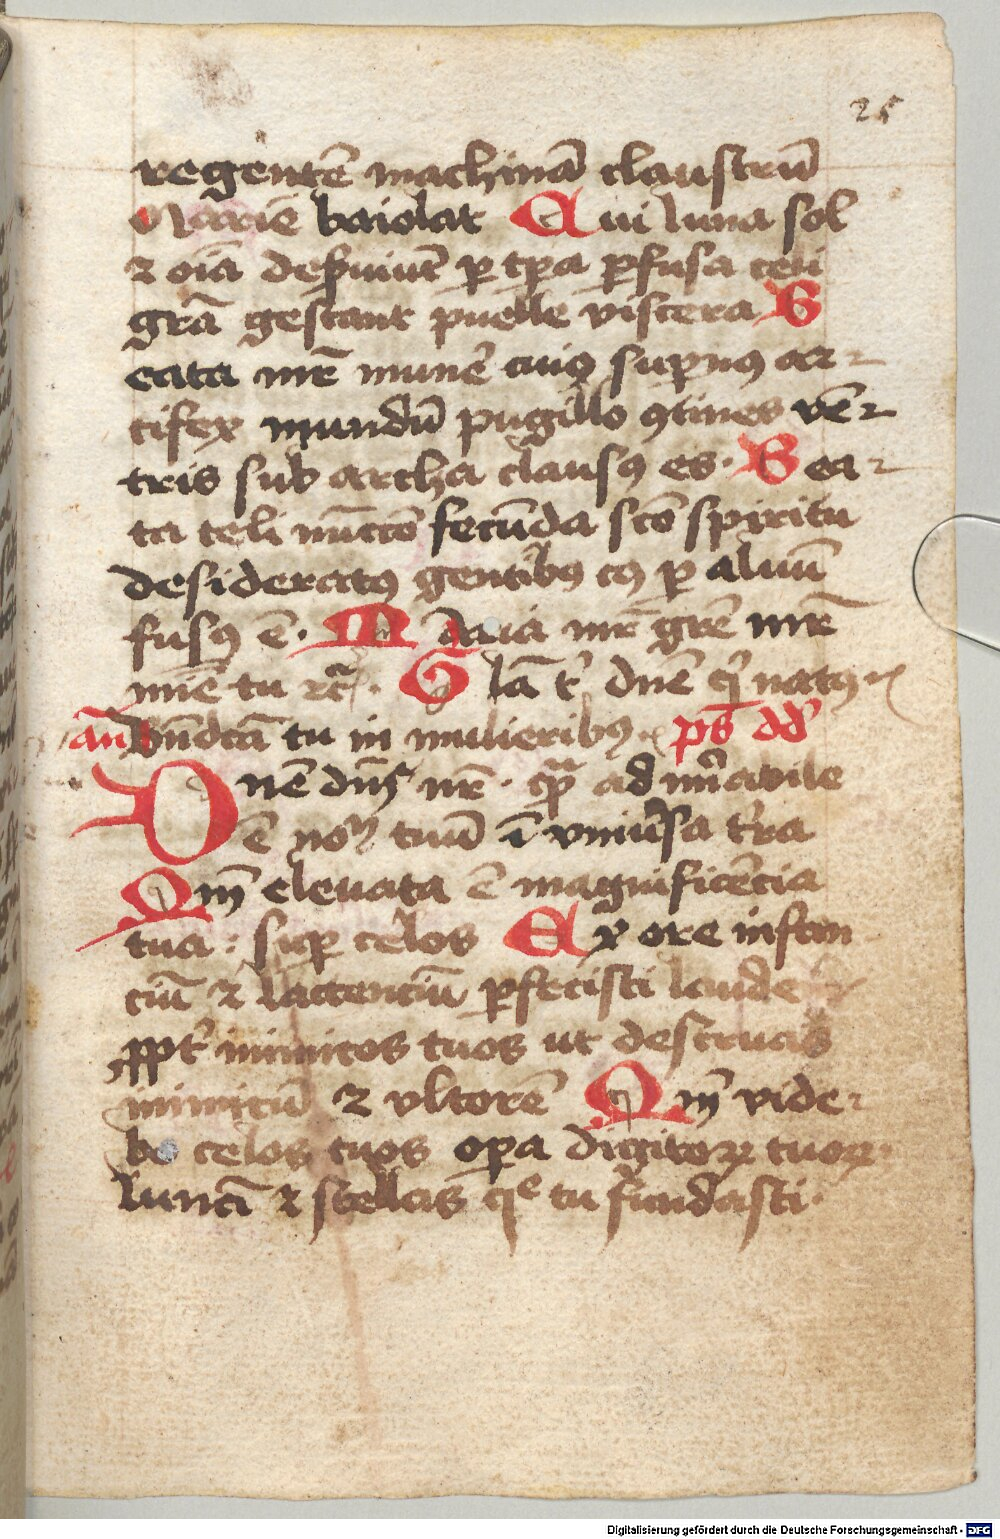 25
regentē machinā claustrū
Marie baiolat Cui luna sol
⁊ oīa deßuiūt ꝑ tꝑa ꝑfusa celi
grā gestant puelle viscera B
eata mr̄e munē cuiꝯ suꝑnꝯ ar⸗
tifex mundū pugillo ꝯtines vē⸗
tris sub archa clausꝯ es. Bea⸗
ta celi nūcco fecūda scō spiritu
desideratꝯ gentibꝯ cꝯ ꝑ aluū
fusꝯ ē. Maria mr̄ grē mr̄e
mie tu ⁊c̄. Glā t' dn̄e q̄ natꝯ
an̄ Bn̄dcā tu in mulieribꝯ. ps̄ dd'
Dn̄e dn̄s nr̄e. qͣ admirabile
ē nom̄ tuū ī vniu'sa t'ra
Qm̄ eleuata ē magnificēcia
tua: suꝑ celos Ex ore infan
ciū ⁊ lactenciū ꝑfecisti laude
ꝓpt' inimicos tuos ut destruas
inimicū ⁊ vltorē Qm̄ vide⸗
bo celos tuos oꝑa digitoꝝ tuoꝝ.
lunā ⁊ stellas qͤ tu fundasti.
Digitalisierung gefördert durch die Deutsche Forschungsgemeinschaft - DFG